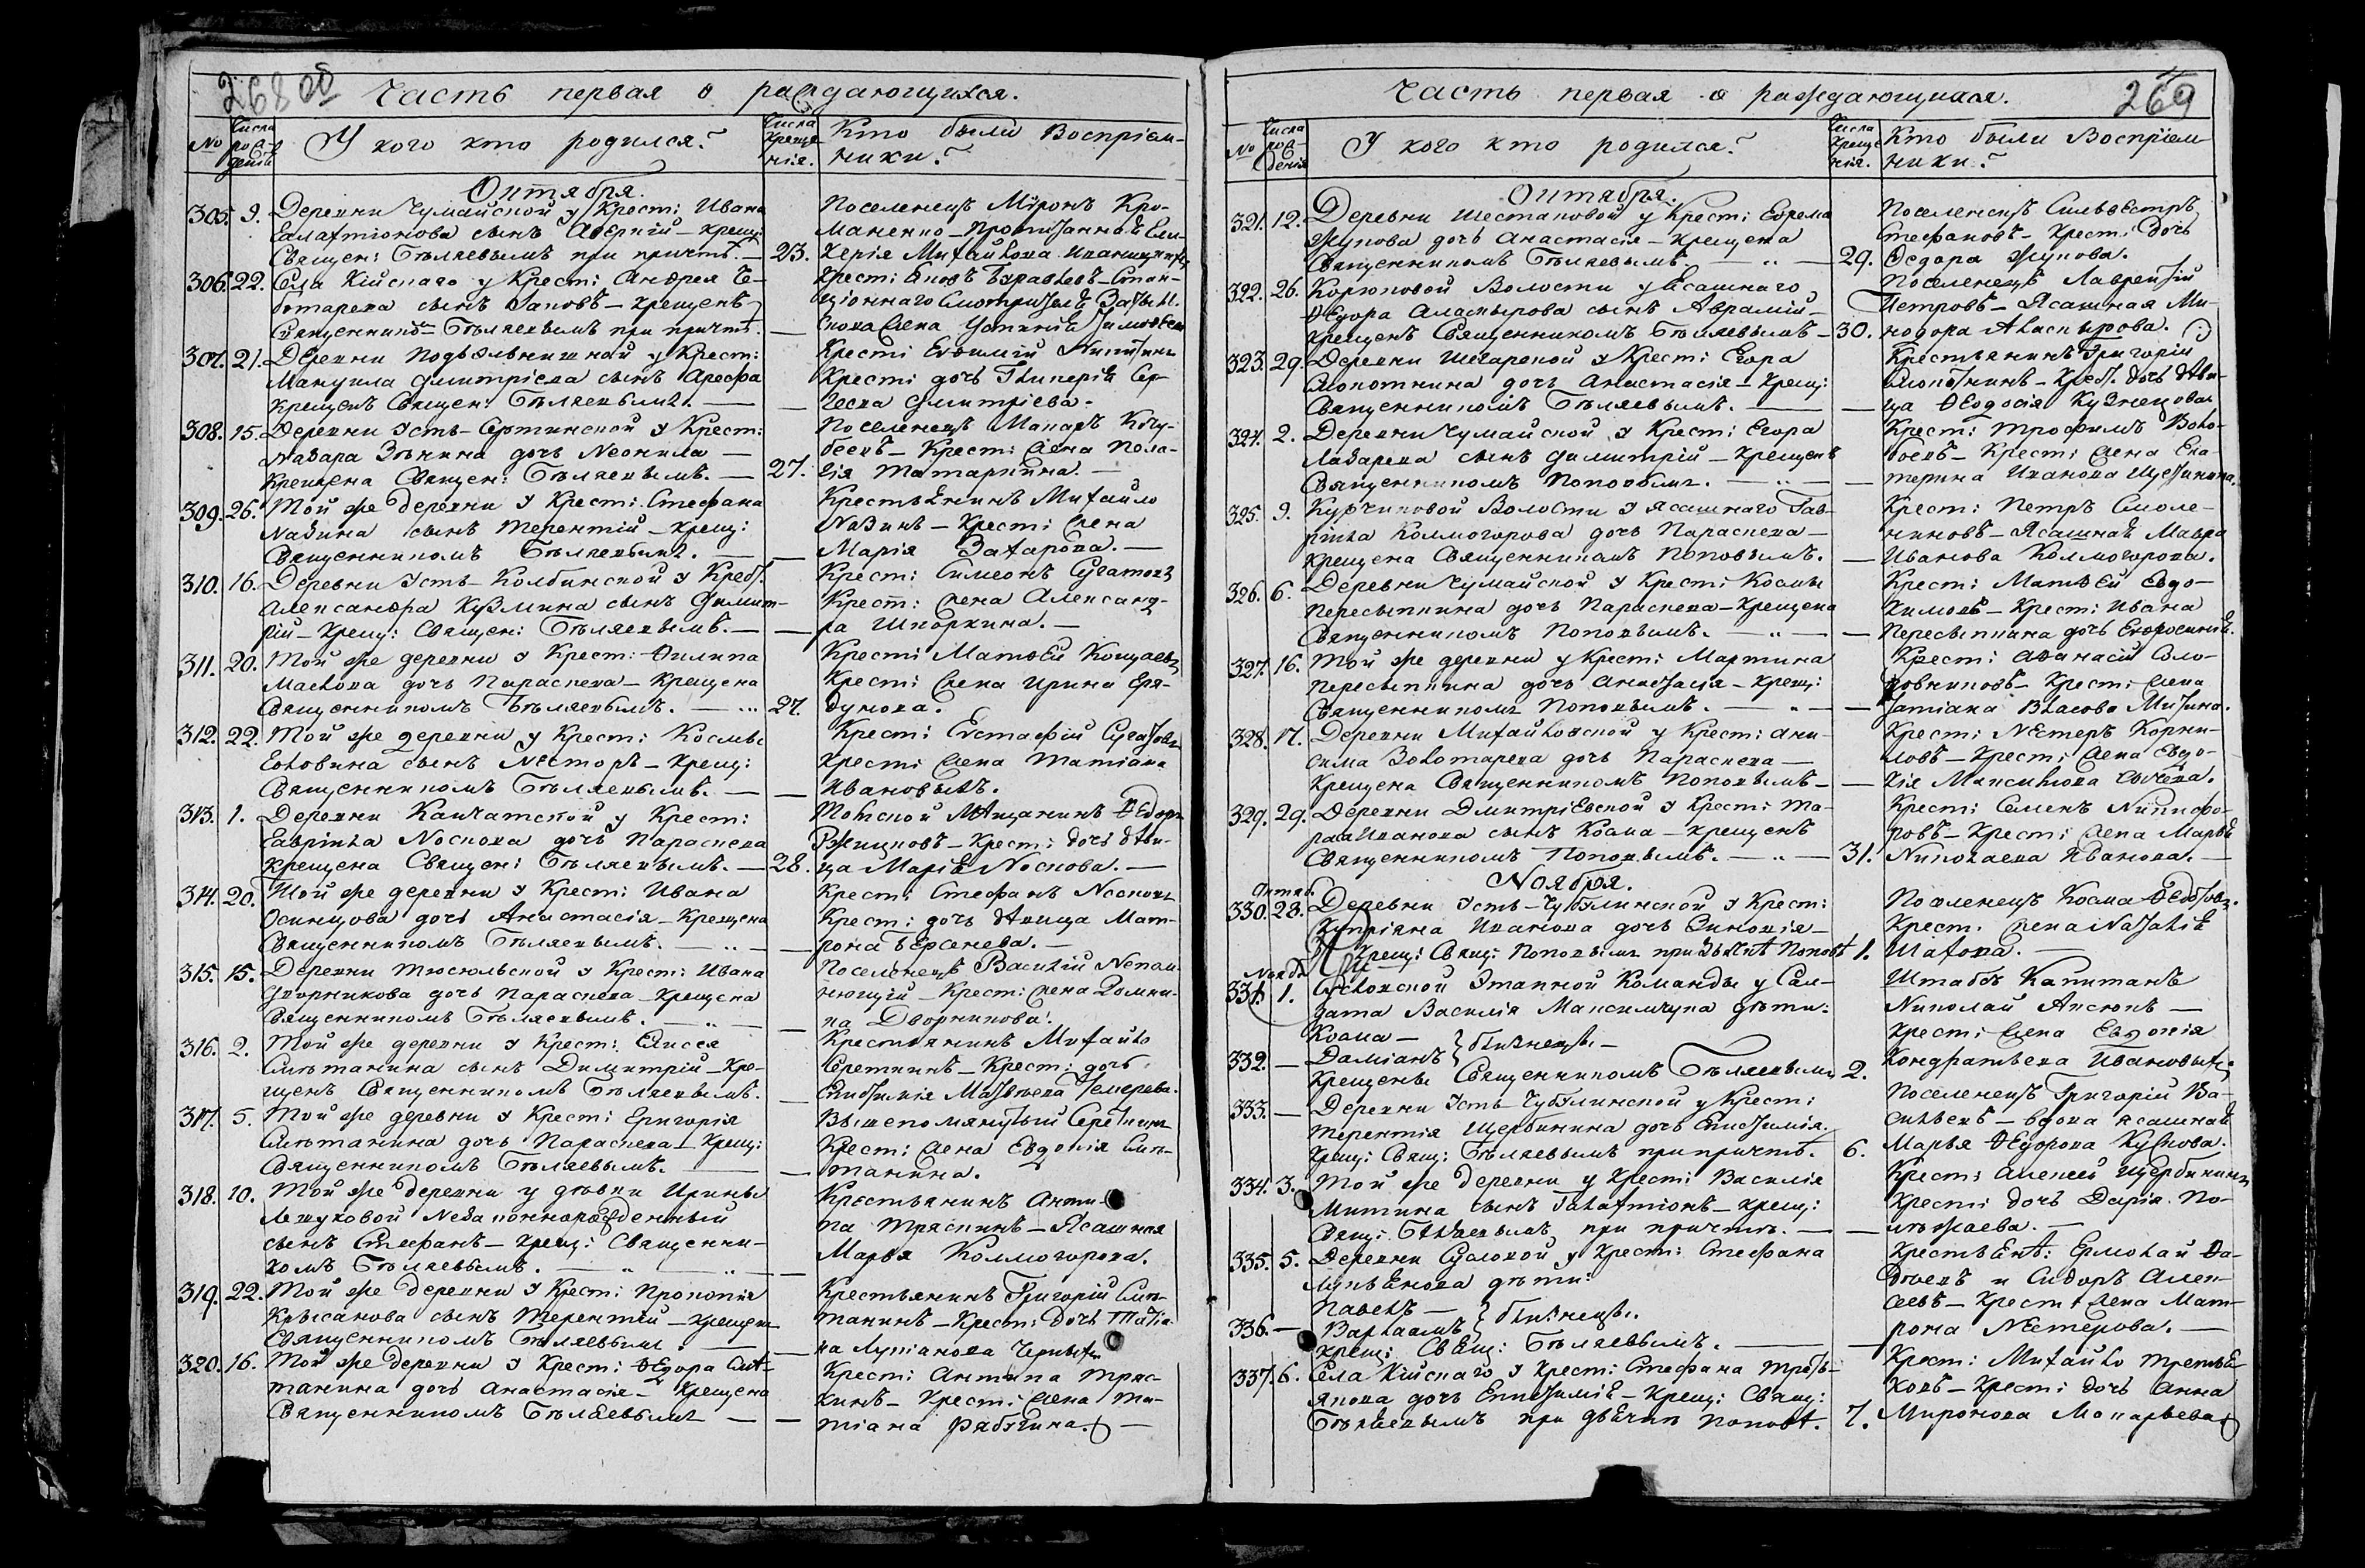 268 об
Часть первая о раждающихся.
№
Числа рожденiй
У кого кто родился?
Числа крещенiя.
Кто были Воспрiем-
ники?
Октября.
305. 9. Деревни Чумайской у Крест: Ивана
Галактiонова сынъ Аверкiй – крещ:
Священ: Бѣляевымъ при причтѣ. — 23.
Поселенецъ Миронъ Кро-
маненко –
306. 22. Села Кiйскаго у Крест: Андрея Бо-
тарева сынъ Iаковъ – крещенъ
Священник: Бѣляевымъ при причтѣ. —
307. 21. Деревни Подъельнишной у Крест:
Мануила Димитрiева сынъ Арефа
крещенъ Священ: Бѣляевымъ. —
Крест: Евфимiй Никитинъ
Крест: дочь Гликерiя Сер-
геева Димитрiева.
308. 15. Деревни Усть-Сертинской у Крест:
Назара Зѣнина дочь Неонила —
крещена Священ: Бѣляевымъ. — 27.
Поселенецъ Макаръ Кочу-
беевъ – Крест: жена Пела-
гiя Татаркина. —
309. 26. Той же деревни у Крест: Стефана
Назина сынъ Терентiй – крещ:
Священникомъ Бѣляевымъ. —
Крестьянинъ Михайло
Назинъ – Крест: жена
Марiя Захарова. —
310. 16. Деревни Усть-Колбинской у Крест:
Александра Кузмина сынъ Димит-
рiй – Крещ: Священ: Бѣляевымъ. —
Крест: Симеонъ Сугатовъ
Крест: жена Александ-
ра Шкоркина. —
311. 20. Той же деревни у Крест: Филипа
Маслова дочь Параскева – Крещена
Священникомъ Бѣляевымъ. — 27.
Крест: Матвей Кощаевъ
Крест: жена Ирина Еря-
дунова.
312. 22. Той же деревни у Крест: Космы
Еловина сынъ Несторъ – Крещ:
Священникомъ Бѣляевымъ. —
Крест: Евстафiй Сугатовъ
Крест: жена Татiана
Ивановыхъ.
313. 1. Деревни Камчатской у Крест:
Гаврiила Носкова дочь Параскева
крещена Священ: Бѣляевымъ. — 28.
Томской Мѣщанинъ Ѳедоръ
Ржицковъ – Крест: дочь дѣви-
ца Марiя Носкова. —
314. 20. Той же деревни у Крест: Ивана
Осинцова дочь Анастасiя – Крещена
Священникомъ Бѣляевымъ. —
Крест: Стефанъ Носковъ
Крест: дочь дѣвица Мат-
рона Берсенева. —
315. 15. Деревни Тюсюльской у Крест: Ивана
Дворникова дочь Параскева – Крещена
Священникомъ Бѣляевымъ. —
Поселенецъ Василiй Непом-
нющiй – Крест: жена Домни-
ка Дворникова.
316. 2. Той же деревни у Крест: Елисея
Смѣтанина сынъ Димитрiй – Кре-
щенъ Священникомъ Бѣляевымъ.
Крестьянинъ Михайло
Сереткинъ – Крест: дочь
317. 5. Той же деревни у Крест: Григорiя
Смѣтанина дочь Параскева – Крещ:
Священникомъ Бѣляевымъ. —
Вышепомянутый Сереткинъ
Крест: жена Евдокiя Смѣ-
танина.
318. 10. Той же деревни у дѣвки Ирины
Лешуковой Незаконнорожденный
сынъ Стефанъ – крещ: Священни-
комъ Бѣляевымъ. —
Крестьянинъ Анти-
па Тряскинъ – Ясашная
Марья Колмогорова.
319. 22. Той же деревни у Крест: Прокопiя
Крысанова сынъ Терентiй – крещен
Священникомъ Бѣляевымъ. —
Крестьянинъ Григорiй Смѣ-
танинъ – Крест: дочь Татiа-
на
320. 16. Той же деревни у Крест: Ѳедора Смѣ-
танина дочь Анастасiя – Крещена
Священникомъ Бѣляевымъ —
Крест: Антипа Тряс-
кинъ – Крест: жена Та-
тiана Рябягина. —
269
Часть первая о раждающихся.
№
Числа рожденiя
У кого кто родился?
Числа крещенiя.
Кто были Воспрiем-
ники?
Октября.
321. 12. Деревни Шестаковой у Крест: Ефрема
Жукова дочь Анастасiя – крещена
Священникомъ Бѣляевымъ. — 29.
Поселенецъ Сильвестръ
Стефановъ – Крест: дочь
Ѳедора Жукова.
322. 26. Корюковой Волости у Ясашнаго
Ѳедора Аласпырова сынъ Аврамiй –
крещенъ Священникомъ Бѣляевымъ – 30.
Поселенецъ Лаврентiй
Петровъ – Ясашная Ми-
нодора Аласпырова.
323. 29. Деревни Шегарской у Крест: Егора
Слопоткина дочь Анастасiя – Крещ:
Священникомъ Бѣляевымъ. —
Крестьянинъ Григорiй
Слопоткинъ – Крест: дочь дѣви-
ца Ѳеодосiя Кузнецова
324. 2. Деревни Чумайской у Крест: Егора
Лазарева сынъ Димитрiй – Крещенъ
Священникомъ Поповымъ. —
Крест: Трофимъ Воло-
боевъ – Крест: жена Ека-
терина Иванова Щетинина.
325. 9. Курчиковой Волости у Ясашнаго Гав-
рiила Колмогорова дочь Параскева —
крещена Священникомъ Поповымъ. —
Крест: Петръ Смоле-
никовъ – Ясашная Мавра
Иванова Колмогорова.
326. 6. Деревни Чумайской у Крест: Космы
Пересыпкина дочь Параскева – Крещена
Священникомъ Поповымъ. —
Крест: Матвей Евдо-
кимовъ – Крест: Ивана
Пересыпкина дочь Ефросинiя.
327. 16. Той же деревни у Крест: Мартина
Пересыпкина дочь Анастасiя – Крещ:
Священникомъ Поповымъ. —
Крест: Аѳанасiй Соло-
довниковъ – Крест: жена
Татiана Власова Митина.
328. 17. Деревни Михайловской у Крест: Ани-
сима Золотарева дочь Параскева —
крещена Священникомъ Поповымъ —
Крест: Нестеръ Корни-
ловъ – Крест: жена Евдо-
кiя Максимова Сычева.
329. 29. Деревни Дмитрiевской у Крест: Та-
раса Иванова сынъ Косма – крещенъ
Священникомъ Поповымъ. — 31.
Крест: Семенъ Никифо-
ровъ – Крест: жена Марья
Николаева Иванова. —
Ноября.
Октяб.
330. 28. Деревни Усть-Чубулинской у Крест:
Кипрiяна Иванова дочь Зиновiя –
Крещ: Свящ: Поповымъ при Дьячкѣ Поповѣ 1.
Поселенецъ Косма Ѳедотовъ.
Крест. жена Наталiя
Шахова. —
Нояб.
331. 1. Сусловской Этапной Команды у Сол-
дата Василiя Максимчука дѣти:
Косма –
332. — Дамiанъ } близнецы –
Крещены Священникомъ Бѣляевымъ 2.
Штабсъ Капитанъ
Николай Аксюкъ —
Крест: жена Евдокiя
Кондратьева Ивановыхъ
333. — Деревни Усть-Чубулинской у Крест:
Терентiя Щербинина дочь Епистимiя.
Крещ: Свящ: Бѣляевымъ при причтѣ. 6.
Поселенецъ Григорiй Ва-
сильевъ – вдова Ясашная
Марья Ѳедорова
334. 3. Той же деревни у Крест: Василiя
Митина сынъ Галактiонъ – Крещ:
Свящ: Бѣляевымъ при причтѣ. —
Крест: Алексей Щербининъ
Крест: дочь Дарiя По-
лежаева. —
335. 5. Деревни Сусловой у Крест: Стефана
Лукьянова дѣти:
Павелъ —
336. — Варлаамъ } близнецы.
крещ: Свящ: Бѣляевымъ. —
Крестьянѣ: Ермолай Фа-
дѣевъ и Сидоръ Алек-
сеевъ – Крест: жена Мат-
рона Нестерова. —
337. 6. Села Кiйскаго у Крест: Стефана Треть-
якова дочь Епистимiя – Крещ: Свящ:
Бѣляевымъ при дьячкѣ Поповѣ. 7.
Крест: Михайло Третья-
ковъ – Крест: дочь Анна
Миронова Макарьева